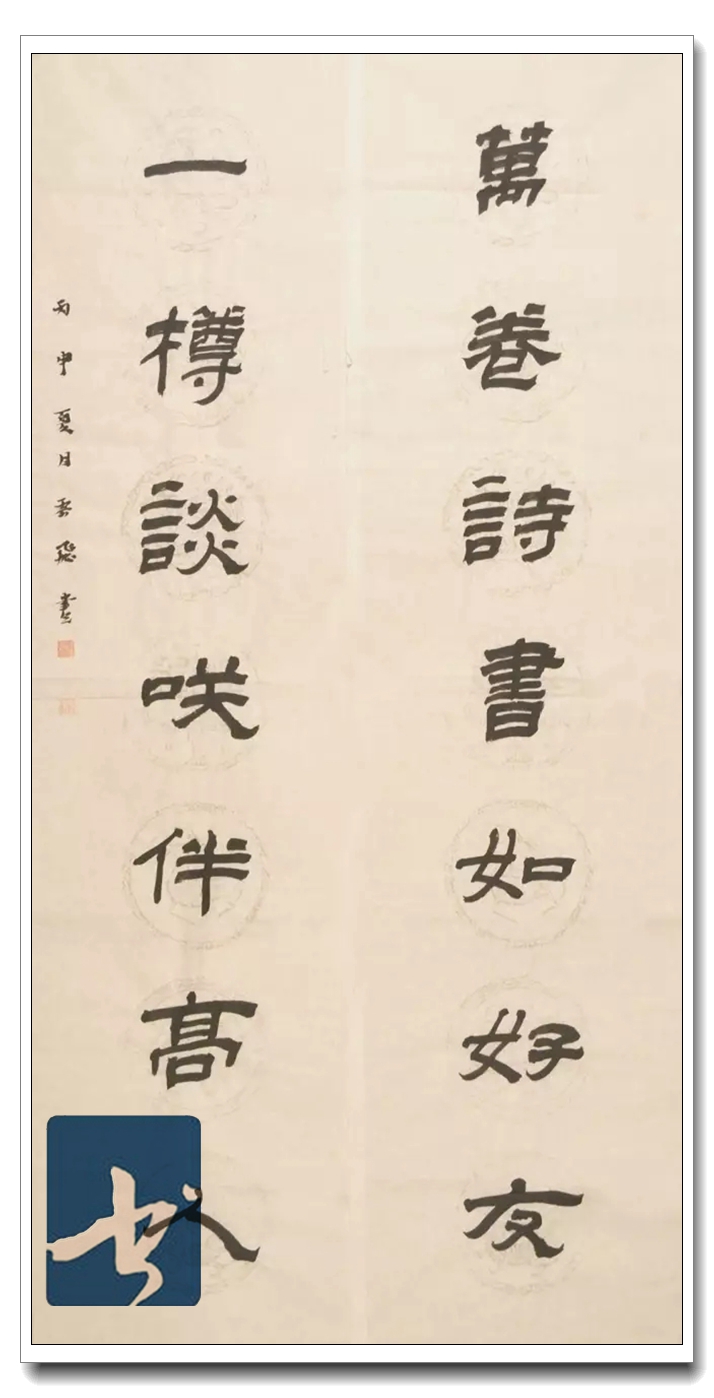 萬卷詩書如好友
一樽談咲伴髙人
丙申夏日
書